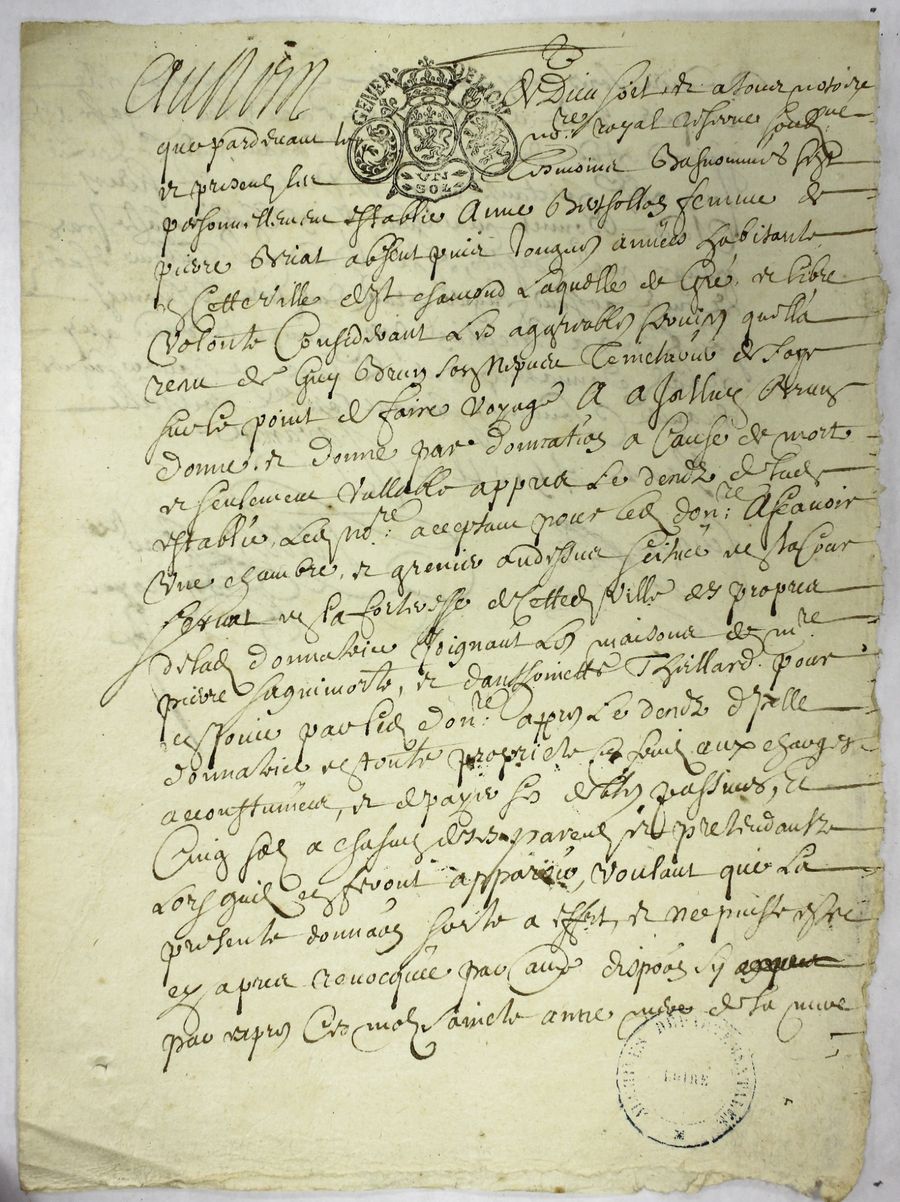 Au Nom
GENER. DE LION
UN SOL
de Dieu soit et a tous notoire
que pardevant le no.re royal reservé soubzne
et presents les tesmoins basnommes s'est
personnellement establie Anne Berthollon femme de
pierre Briat absent puis longues années habitante
en cette ville de st chamond laquelle de gré et libre
volonté considerant les aggreables services quella
receu de Guy Brun son nepveu de
sur le point de faire voyage a Brun
donné et donne par donnation a cause de mort
et seulement vallable appres le deceds de lade
establie, led no.re acceptant pour led don.re Ascavoir
une chambre et grenier audessus scitué en la Cour
en la forteresse de cette ville des propres
de lad donnatrice joignant les maisons de m.re
pierre et d'anthoinette Thillard pour
en jouir par led don.re apres le deceds d'jcelle
donnatrice en toute proprieté aux charges
accoustumées, et de payer ses debtes passives, et
Cinq sols a chascun de ses parents et pretendants
Lors quil en seront apparoir, voulant que la
presente donnaon sorte a effect, et ne puisse estre
cy apres revocquée par autre disposon sy
par expres ces mots saincte anne mere de la mere
ARCHIVES DEPARTEMENTALES
LOIRE